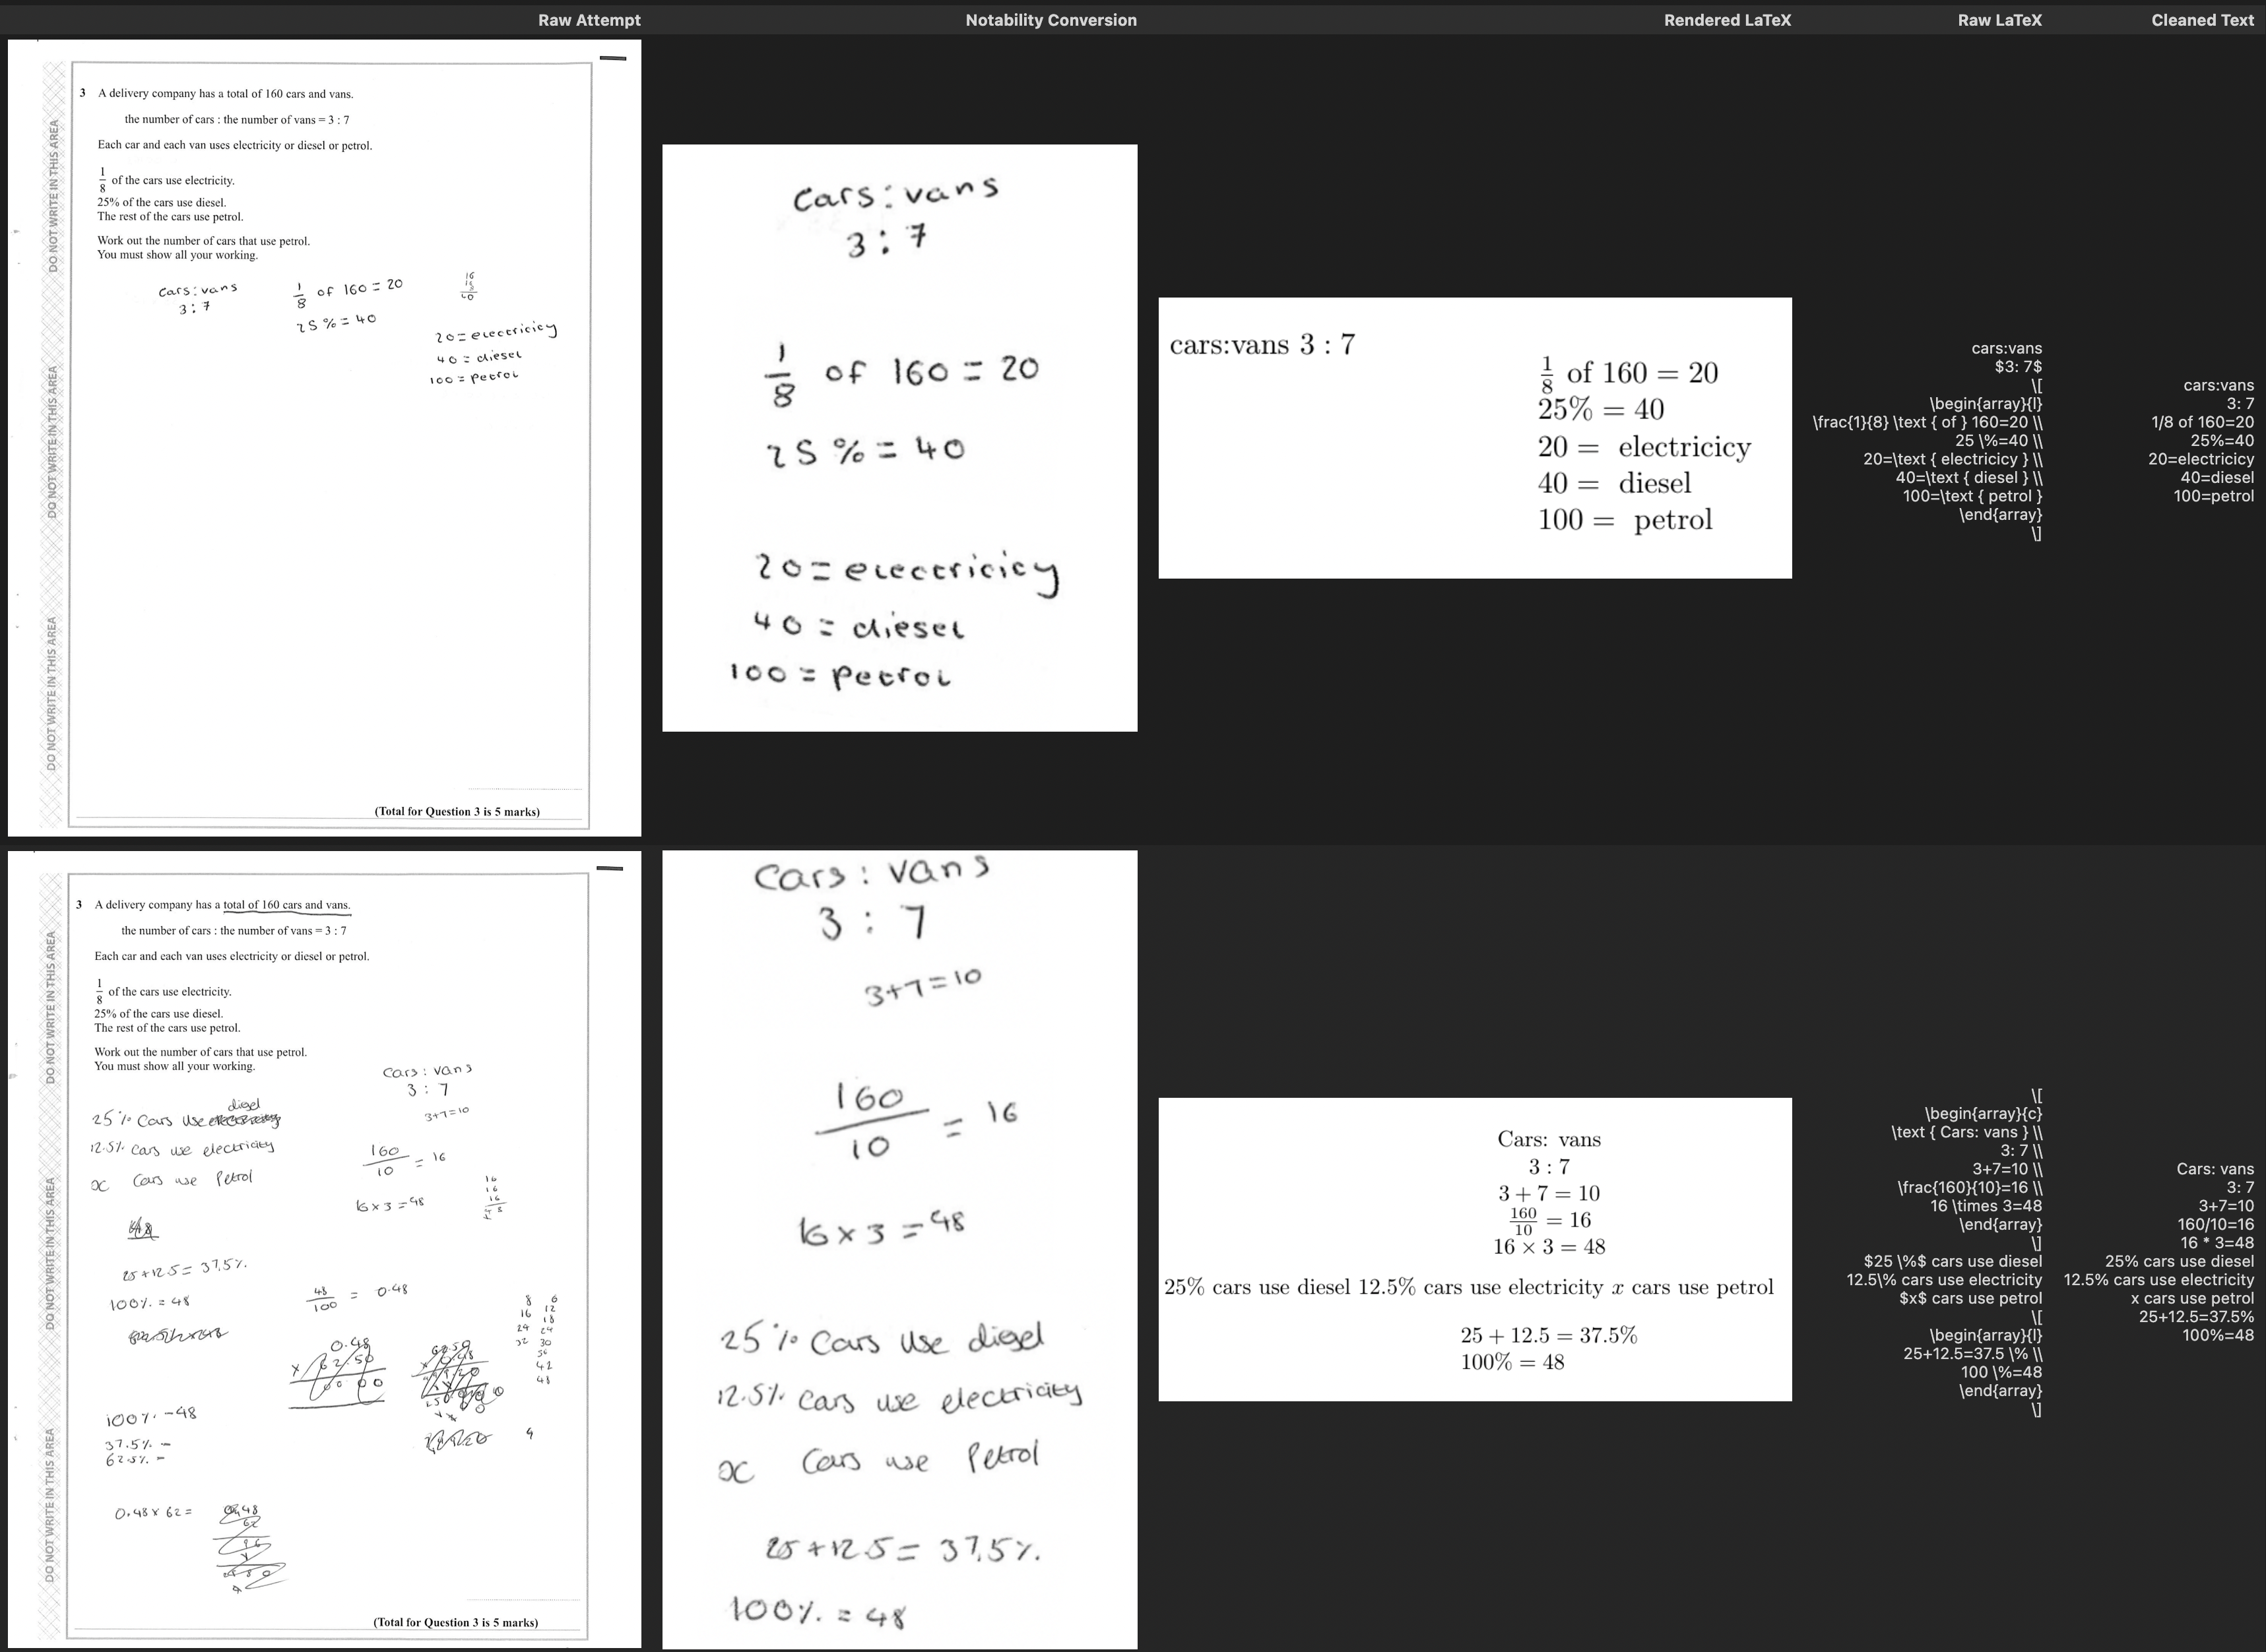 Raw Attempt Notability Conversion Rendered LaTeX Raw LaTeX Cleaned Text
DO NOT WRITE IN THIS AREA
DO NOT WRITE IN THIS AREA
DO NOT WRITE IN THIS AREA
3 A delivery company has a total of 160 cars and vans.
the number of cars : the number of vans = 3 : 7
Each car and each van uses electricity or diesel or petrol.
1/8 of the cars use electricity.
25% of the cars use diesel.
The rest of the cars use petrol.
Work out the number of cars that use petrol.
You must show all your working.
cars:vans
3:7
1/8 of 160 = 20
25% = 40
20 = electricicy
40 = diesel
100 = petrol
(Total for Question 3 is 5 marks)
cars:vans
3:7
1/8 of 160 = 20
25% = 40
20 = electricicy
40 = diesel
100 = petrol
cars:vans 3 : 7
1/8 of 160 = 20
25% = 40
20 = electricicy
40 = diesel
100 = petrol
cars:vans
$3: 7$
\[
\begin{array}{l}
\frac{1}{8} \text { of } 160=20 \\
25 \%=40 \\
20=\text { electricicy } \\
40=\text { diesel } \\
100=\text { petrol }
\end{array}
\]
cars:vans
3: 7
1/8 of 160=20
25%=40
20=electricicy
40=diesel
100=petrol
DO NOT WRITE IN THIS AREA
DO NOT WRITE IN THIS AREA
DO NOT WRITE IN THIS AREA
3 A delivery company has a total of 160 cars and vans.
the number of cars : the number of vans = 3 : 7
Each car and each van uses electricity or diesel or petrol.
1/8 of the cars use electricity.
25% of the cars use diesel.
The rest of the cars use petrol.
Work out the number of cars that use petrol.
You must show all your working.
Cars : vans
3 : 7
3+7=10
160/10 = 16
16 x 3 = 48
16
16
16
48
25% Cars use diesel
12.5% cars use electricity
x Cars use Petrol
25 + 12.5 = 37.5%
100% = 48
48/100 = 0.48
0.48
x 62.50
8 6
16 12
24 18
32 24
30
36
42
48
100% - 48
37.5% -
62.5% -
0.48 x 62 =
(Total for Question 3 is 5 marks)
Cars : vans
3 : 7
3+7=10
160/10 = 16
16 x 3 = 48
25% Cars use diesel
12.5% cars use electricity
x Cars use Petrol
25 + 12.5 = 37.5%
100% = 48
Cars: vans
3 : 7
3 + 7 = 10
160/10 = 16
16 × 3 = 48
25% cars use diesel 12.5% cars use electricity x cars use petrol
25 + 12.5 = 37.5%
100% = 48
\[
\begin{array}{c}
\text { Cars: vans } \\
3: 7 \\
3+7=10 \\
\frac{160}{10}=16 \\
16 \times 3=48
\end{array}
\]
$25 \%$ cars use diesel
12.5\% cars use electricity
$x$ cars use petrol
\[
\begin{array}{l}
25+12.5=37.5 \% \\
100 \%=48
\end{array}
\]
Cars: vans
3: 7
3+7=10
160/10=16
16 * 3=48
25% cars use diesel
12.5% cars use electricity
x cars use petrol
25+12.5=37.5%
100%=48